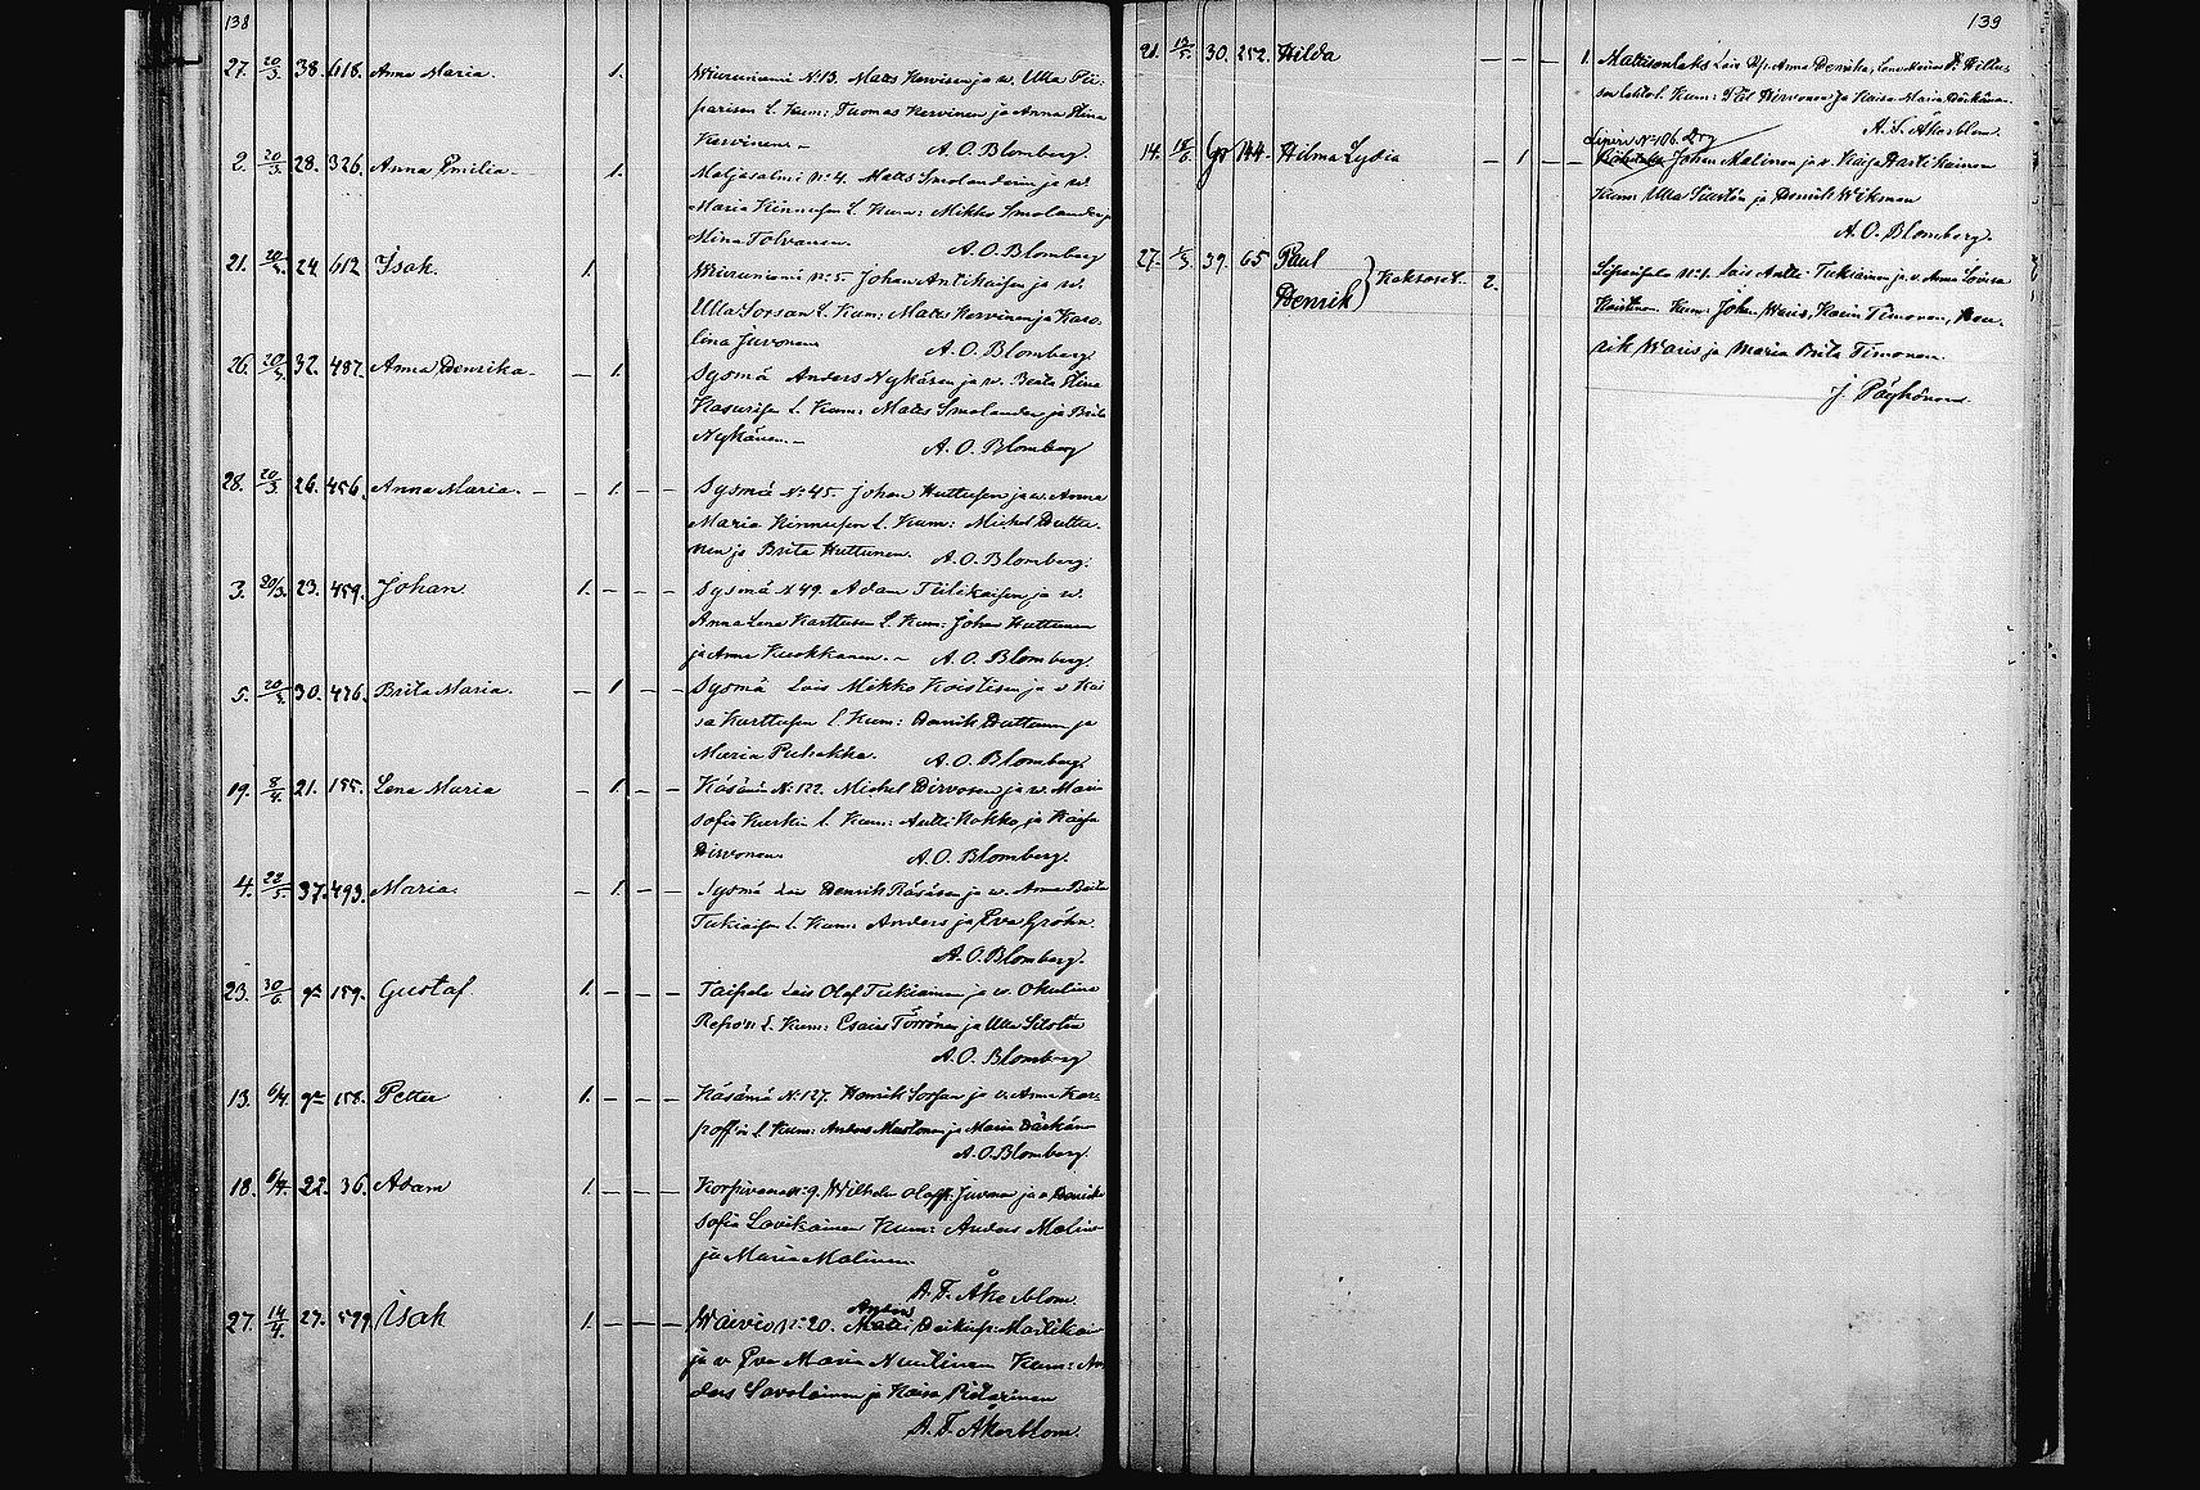 138
27. 20/3. 38. 618. Anna Maria. 1. Wiiruniemi N:13. Matts Kervisen ja w. Ulla Pii-
parisen L. Kum: Tuomas Kervinen ja Anna Stina
Kervinen. – A. O. Blomberg.
2. 20/3. 28. 326. Anna Emilia – 1. Maljasalmi N:4. Matts Smolanderin ja w.
Maria Kinnusen L. Kum: Mikko Smolander ja
Mina Tolvanen. A. O. Blomberg
21. 20/3. 24. 612 Isak. 1. Wiiruniemi N:5. Johan Antikaisen ja w.
Ulla Sorsan L. Kum: Matts Kervinen ja Karo-
lina Juvonen A. O. Blomberg.
26. 20/3. 32. 487. Anna Henrika – – 1. Sysmä Anders Nykäsen ja w. Beata Stina
Kasurisen L. Kum: Matts Smolander ja Brita
Nykänen. – A. O. Blomberg
28. 20/3. 26. 456. Anna Maria. – – 1. – – Sysmä N:45. Johan Huttusen ja w. Anna
Maria Kinnusen L. Kum: Michel Huttu-
nen ja Brita Huttunen. A. O. Blomberg.
3. 20/3. 23. 459. Johan. 1. – – – Sysmä N 49. Adam Tiilikaisen ja w.
Anna Lena Karttusen L. Kum: Johan Huttunen
ja Anna Kuokkanen. – A. O. Blomberg.
5. 20/3. 30. 476. Brita Maria. – 1 – – Sysmä Lois Mikko Koistisen ja w Kai
sa Karttusen L. Kum: Henrik Huttunen ja
Maria Puhakka. A. O. Blomberg.
19. 8/4. 21. 155. Lena Maria – 1. – – Käsämä N:122. Michel Hirvosen ja w. Maria
Sofia Kurkin L. Kum: Antti Kokko ja Kaisa
Hirvonen. A. O. Blomberg.
4. 22/5. 37. 493. Maria. – 1. – – Sysmä Lois Henrik Räsäsen ja w. Anna Brita
Tukiaisen L. Kum: Anders ja Eva Gröhn.
A. O. Blomberg.
23. 30/6 159. Gustaf. 1. – – – Taipale Lois Olof Tukiainen ja w. Okulina
Repo'n L. Kum: Esaias Törrönen ja Ulla
A. O. Blomberg
13. 6/4. 158. Petter 1. – – – Käsämä N:127. Henrik Sorsan ja w. Anna Kar-
poff'in L. Kum: Anders Mustonen ja Maria Härkönen
A. O. Blomberg.
18. 6/4. 22. 36. Adam 1. – – – Korpivaara N:9. Wilhelm Juvonen ja w Henrika
Sofia Lavikainen Kum: Anders Malinen
ja Maria Malinen.
A. F. Åkerblom.
Anders
27. 14/4. 27. 579. Isak 1. – – – Waivio N:20. Matts Martikain
ja w Eva Maria Nuutinen Kum: An
ders Savolainen ja Kaisa Pietarinen
A. F. Åkerblom.
139
21. 30. 252. Hilda – – – 1. Mattisenlaks Lois Anna Henrika,
Kum: Hirvonen ja Kaisa Maria Härkönen.
A. F. Åkerblom.
Liperi N:106.
14. 144. Hilma Lydia – 1 – – Johan Malinen ja v. Kaisa Hartikainen
Kum: Ulla ja Henrik Wikman
A. O. Blomberg.
27. 1/3. 39. 65 Paul
Henrik } Kaksoset. 2. N:1. Lois Antti Tukiainen ja v. Anna Lovisa
Koistinen. Kum: Johan Waris, Karin Timonen, Hen-
rik Waris ja Maria Brita Timonen.
J. Päyhönen.